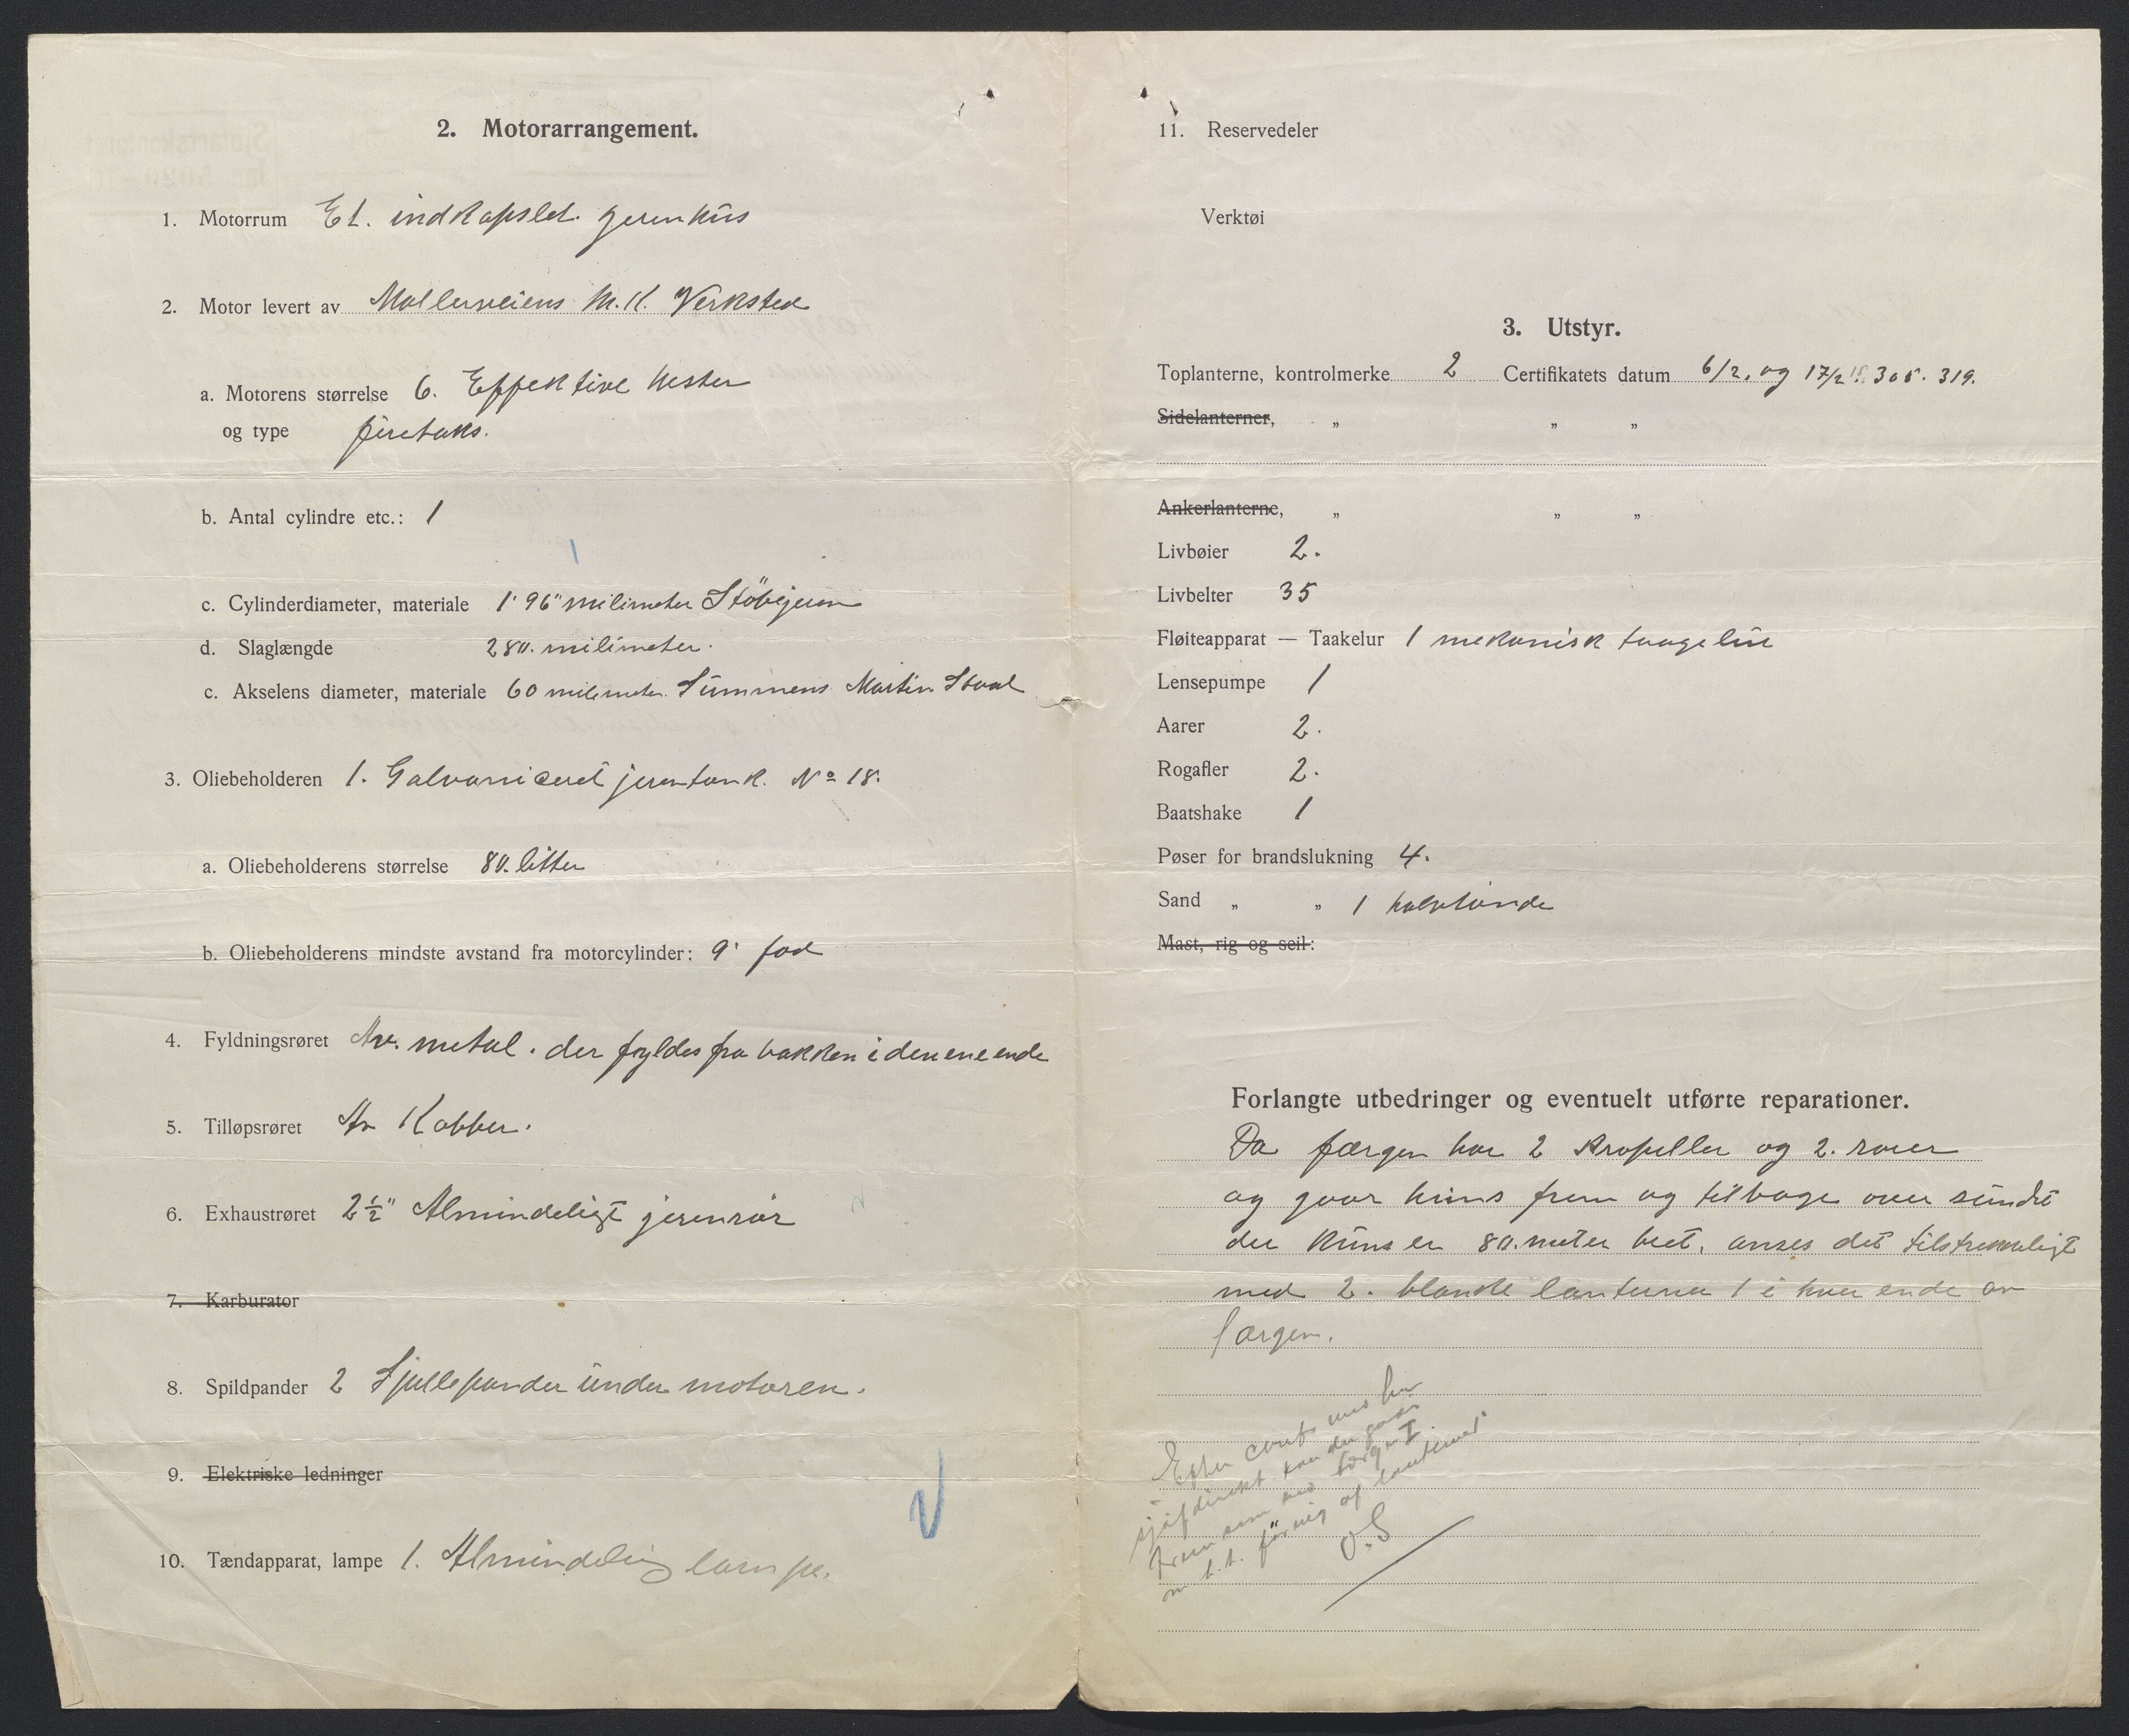 2. Motorarrangement.
1. Motorrum Et. indkapslet jerenhus
2. Motor levert av Møllerveiens M. K. Verksted
a. Motorens størrelse 6. Effektive hester
og type firetaks.
b. Antal cylindre etc.: 1
c. Cylinderdiameter, materiale 1'96" milimeter Stöbejeren
d. Slaglængde 280. milimeter.
c. Akselens diameter, materiale 60 milimeter. Summens Martin Staal
3. Oliebeholderen 1. Galvaniceret jerentank. No 18.
a. Oliebeholderens størrelse 80. litter
b. Oliebeholderens mindste avstand fra motorcylinder: 9' fod
4. Fyldningsrøret Av. metal. der fyldes fra bakken i den ene ende
5. Tilløpsrøret Av Kobber.
6. Exhaustrøret 2½" Almindeligt jerenrör
7. Karburator
8. Spildpander 2 Spillepander under motoren.
9. Elektriske ledninger
10. Tændapparat, lampe 1. Almindelig lampe.
11. Reservedeler
Verktøi
3. Utstyr.
Toplanterne, kontrolmerke 2 Certifikatets datum 6/2. og 17/2 305. 319.
Sidelanterner, „ „ „
Ankerlanterne, „ „ „
Livbøier 2.
Livbelter 35
Fløiteapparat — Taakelur 1 mekanisk taagelur
Lensepumpe 1
Aarer 2.
Rogafler 2.
Baatshake 1
Pøser for brandslukning 4.
Sand „ „ 1 halvtönde
Mast, rig og seil:
Forlangte utbedringer og eventuelt utførte reparationer.
Da færgen har 2 Propeller og 2. roer
og gaar kuns frem og tilbage over sundet
der kuns er 80. meter bret. anses det tilstrekkeligt
med 2. blanke lanterner 1 i hver ende av
færgen.
Efter conf. med hr
sjöfdirekt. kan der gaaes
frem som med færge I
om b.t. föring af lanterner.
O.S